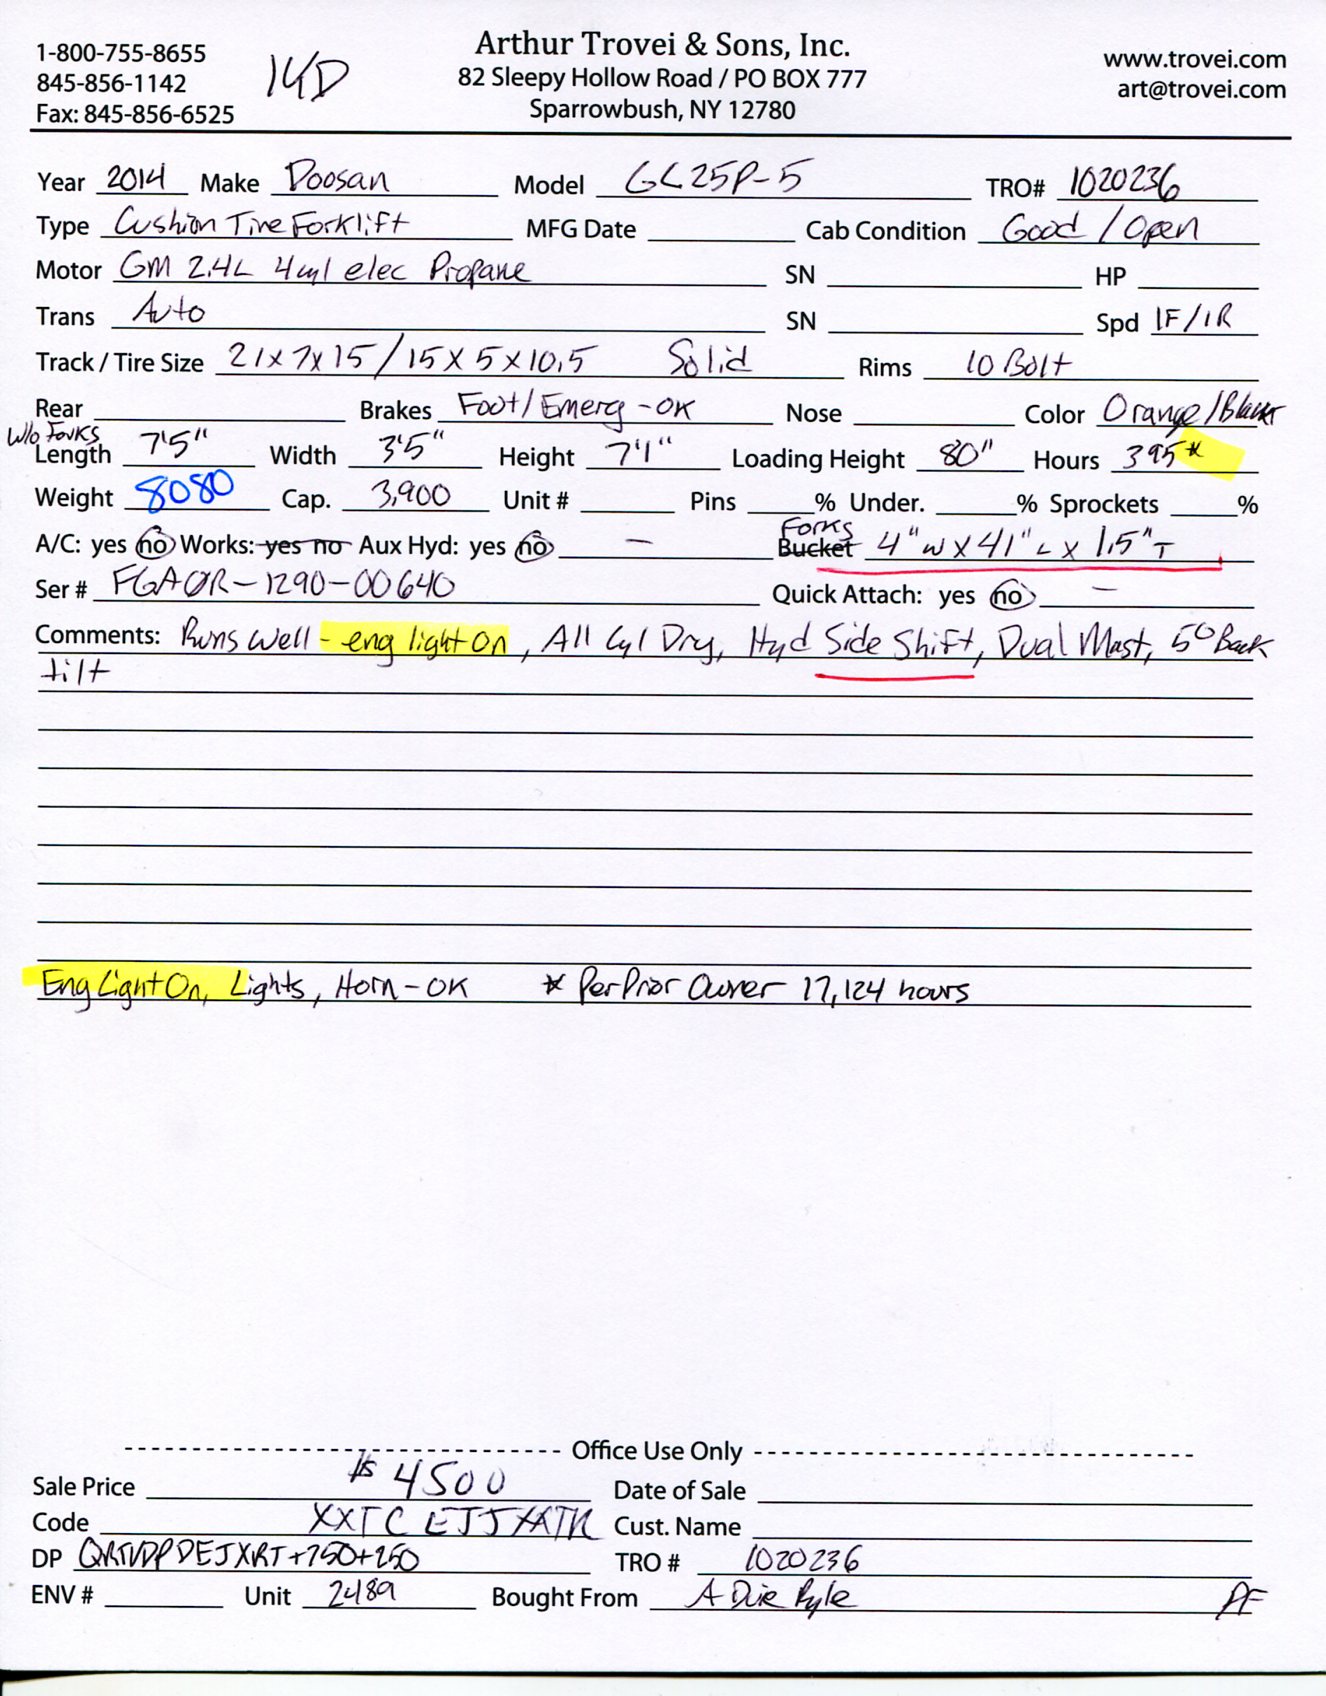 1-800-755-8655
845-856-1142
Fax: 845-856-6525
Arthur Trovei & Sons, Inc.
82 Sleepy Hollow Road / PO BOX 777
Sparrowbush, NY 12780
www.trovei.com
art@trovei.com
Year 2014 Make Doosan Model GC25P-5 TRO# 1020236
Type Cushion Tire Forklift MFG Date Cab Condition Good / Open
Motor GM 2.4L 4cyl elec Propane SN HP
Trans Auto SN Spd 1F/1R
Track / Tire Size 21x7x15 / 15x5x10.5 Solid Rims 10 Bolt
Rear Brakes Foot/Emerg-OK Nose Color Orange/Black
W/o Forks
Length 7'5" Width 3'5" Height 7'1" Loading Height 80" Hours 395*
Weight 8080 Cap. 3,900 Unit # Pins % Under. % Sprockets %
A/C: yes no Works: yes no Aux Hyd: yes no — Forks Bucket 4"W x 41"L x 1.5"T
Ser # FGA0R-1290-00640 Quick Attach: yes no —
Comments: Runs Well - eng light On, All Cyl Dry, Hyd Side Shift, Dual Mast, 5° Back
tilt
Eng Light On, Lights, Horn-OK * Per Prior Owner 17,124 hours
Office Use Only
Sale Price 4500 Date of Sale
Code Cust. Name
DP +750+250 TRO # 1020236
ENV # Unit 2489 Bought From